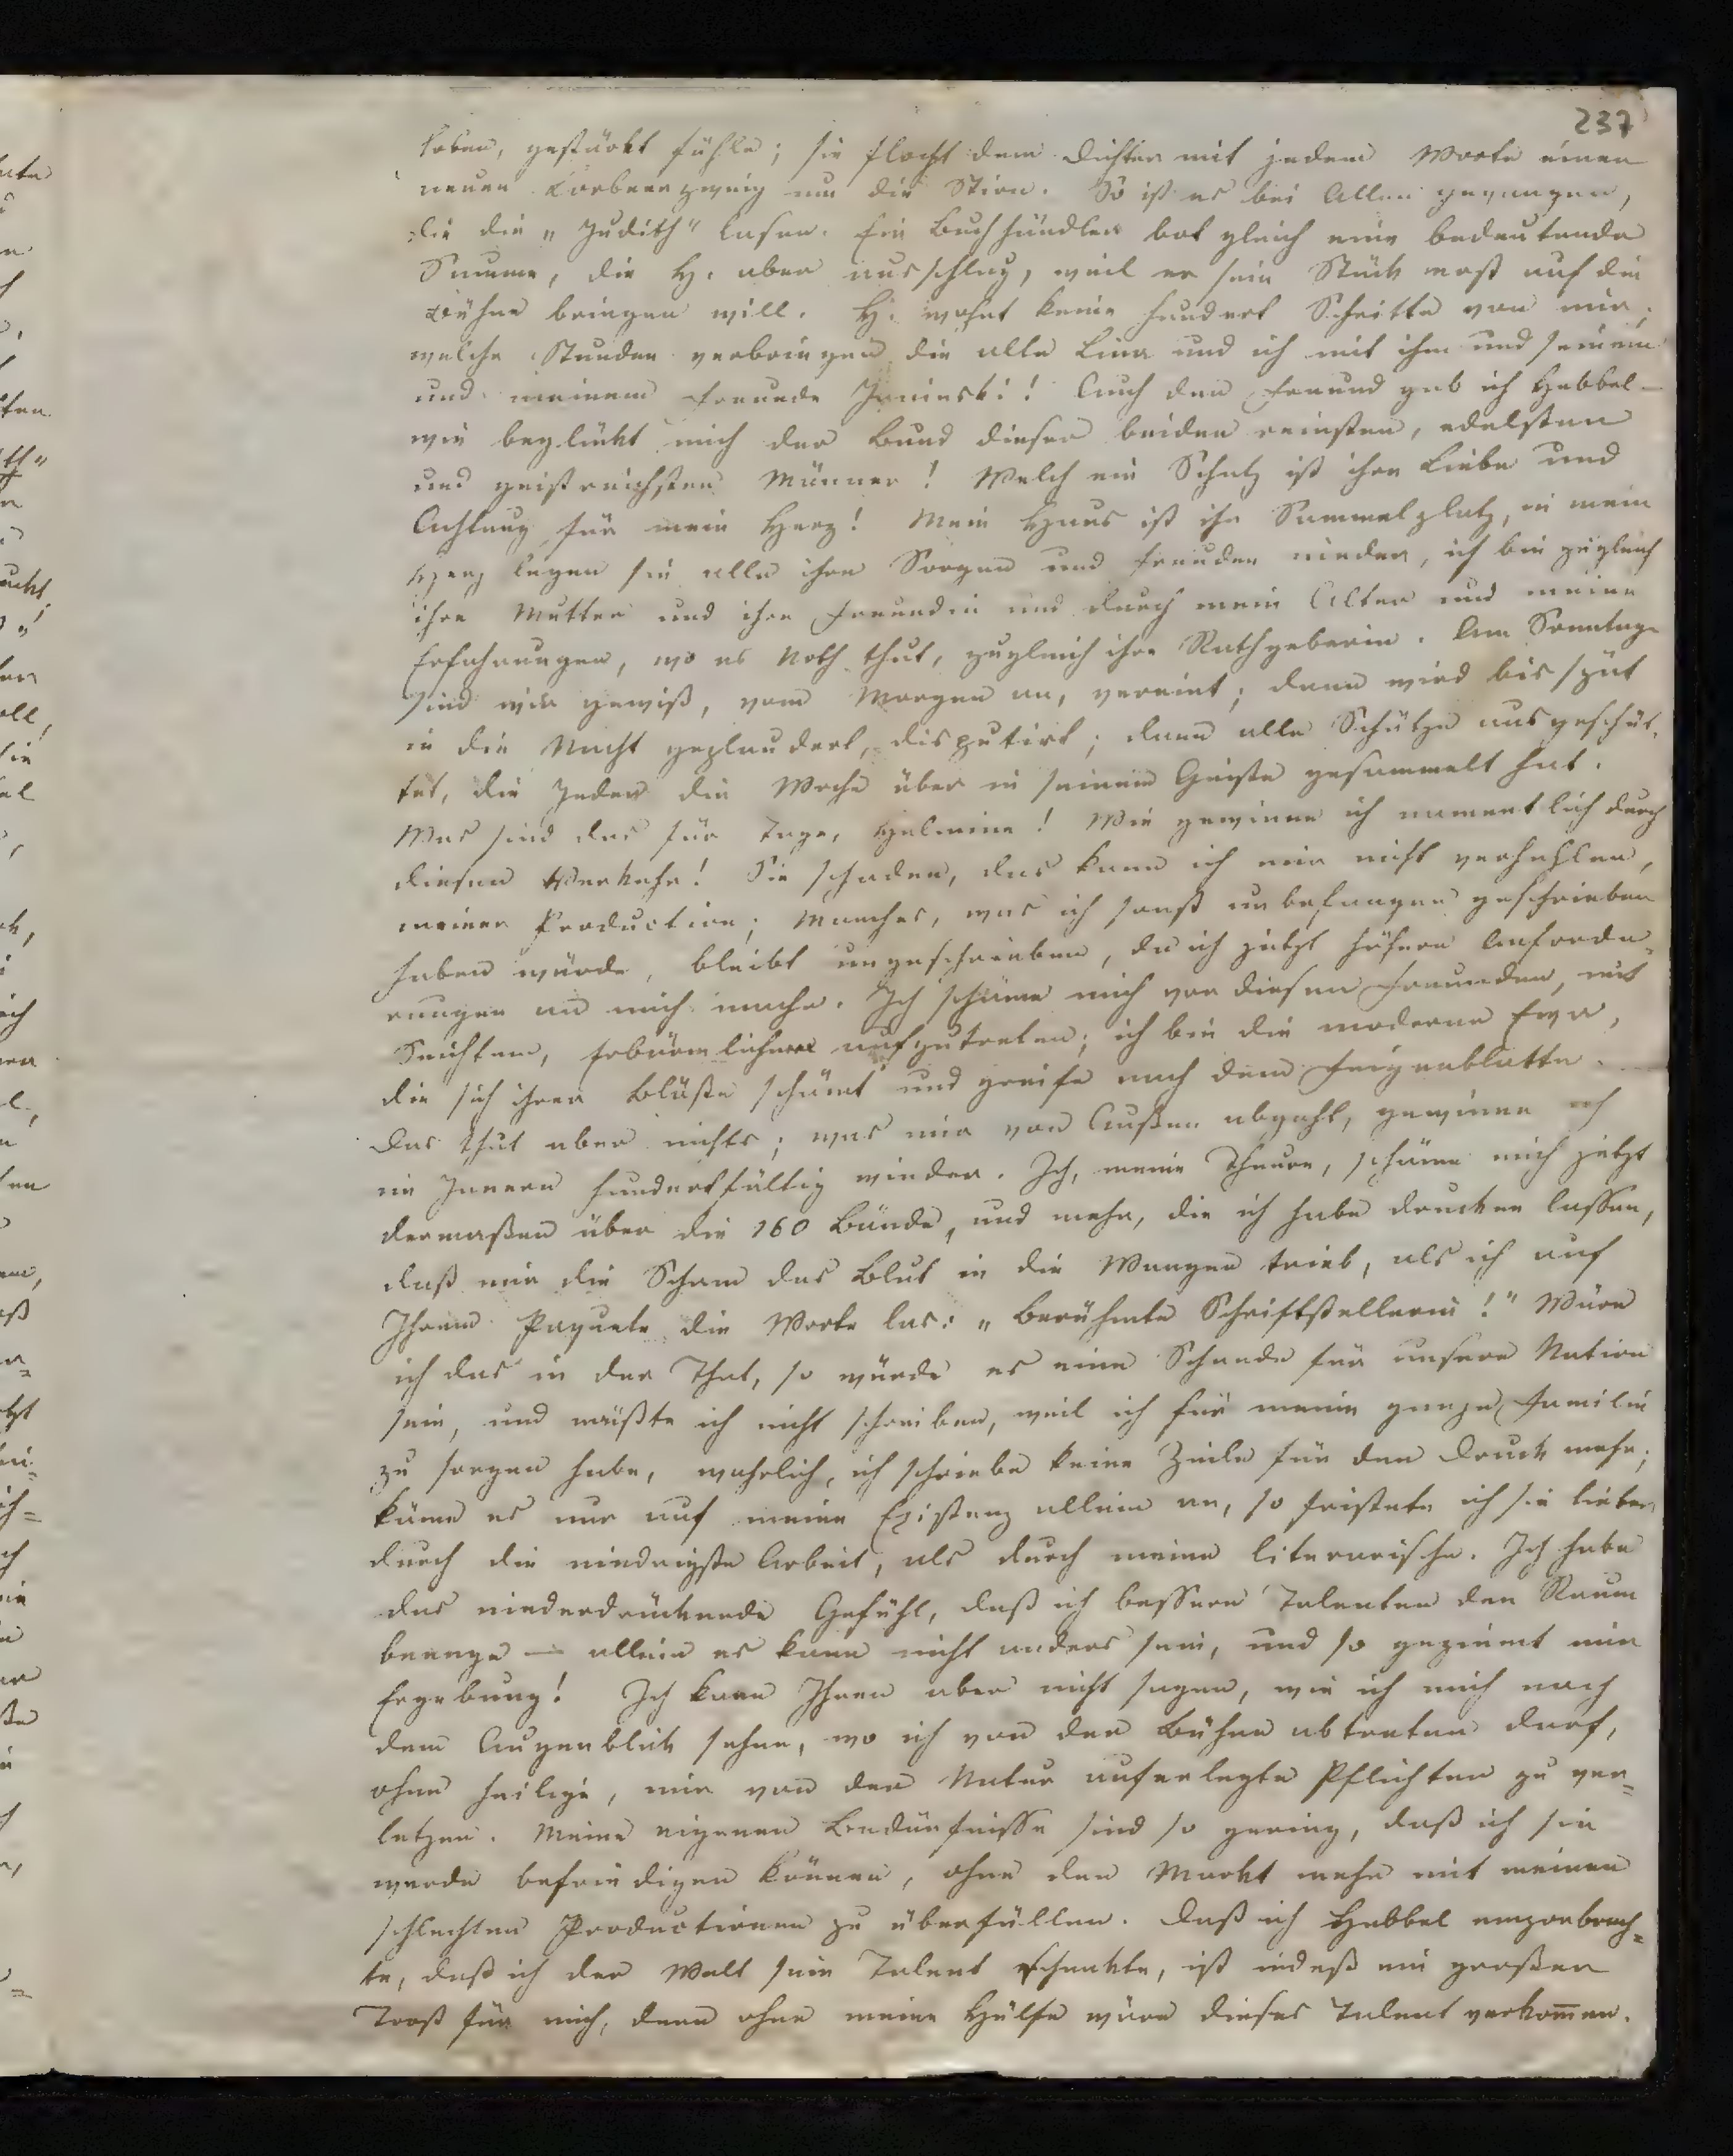 237
loben, gestärkt fühle; sie flocht dem Dichter mit jedem Worte einen
neuen Lorbeerzweig um die Stirn. So ist es bei Allen gegangen,
die die „Judith" lasen. Ein Buchhändler bot gleich eine bedeutende
Summe, die H. aber ausschlug, weil er sein Stück erst auf die
Bühne bringen will. H. wohnt keine hundert Schritte von mir;
welche Stunden verbringen die alle Lina und ich mit ihm und seinem
und meinem Freunde Janinski! Auch den Freund gab ich Hebbel –
wie beglückt mich der Bund dieser beiden reinsten, edelsten
und geistreichsten Männer! Welch ein Schatz ist ihre Liebe und
Achtung für mein Herz! Mein Haus ist ihr Sammelplatz, in mein
Herz legen sie alle ihre Sorgen und Freuden nieder, ich bin zugleich
ihre Mutter und ihre Freundin und durch mein Alter und meine
Erfahrungen, wo es Noth thut, zugleich ihre Rathgeberin. Am Sonntage
sind wir gewiß, vom Morgen an, vereint; dann wird bis spät
in die Nacht geplaudert, disputirt; dann alle Schätze ausgeschüt-
tet, die Jeder die Woche über in seinem Geiste gesammelt hat.
Was sind das für Tage, Helmine! Wie gewinne ich namentlich durch
diesen Verkehr! Sie schaden, das kann ich mir nicht verhehlen,
meiner Production; Manches, was ich sonst unbefangen geschrieben
haben würde, bleibt ungeschrieben, da ich jetzt höhere Anforde-
rungen an mich mache. Ich schäme mich vor diesen Freunden, mit
Seichtem, Erbärmlichem aufzutreten; ich bin die moderne Eva,
die sich ihrer Blöße schämt und greife nach dem Feigenblatte.
Das thut aber nichts; was mir von Außen abgeht, gewinne ich
im Innern hundertfältig wieder. Ich, meine Theure, schäme mich jetzt
dermaßen über die 160 Bände, und mehr, die ich habe drucken lassen,
daß mir die Scham das Blut in die Wangen trieb, als ich auf
Ihrem Paquete die Worte las: „Berühmte Schriftstellerin!" Wäre
ich das in der That, so würde es eine Schande für unsere Nation
sein, und müßte ich nicht schreiben, weil ich für meine ganze Familie
zu sorgen habe, wahrlich, ich schriebe keine Zeile für den Druck mehr;
käme es nur auf meine Existenz allein an, so fristete ich sie lieber
durch die niedrigste Arbeit, als durch meine literarische. Ich habe
das niederdrückende Gefühl, daß ich bessern Talenten den Raum
beenge — allein es kann nicht anders sein, und so geziemt mir
Ergebung! Ich kann Ihnen aber nicht sagen, wie ich mich nach
dem Augenblick sehne, wo ich von der Bühne abtreten darf,
ohne heilige, mir von der Natur auferlegte Pflichten zu ver-
letzen. Meine eigenen Bedürfnisse sind so gering, daß ich sie
werde befriedigen können, ohne den Markt mehr mit meinen
schlechten Productionen zu überfüllen. Daß ich Hebbel emporbrach-
te, daß ich der Welt sein Talent schenkte, ist indeß ein großer
Trost für mich, denn ohne meine Hülfe wäre dieses Talent verkommen.